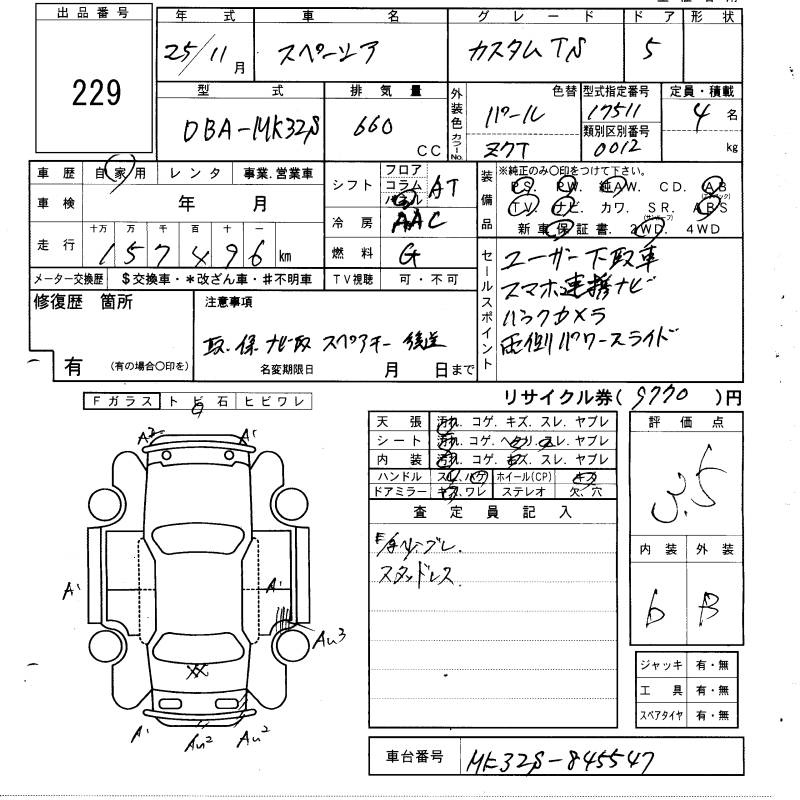 出品番号
229
年式
25/11月
車名
スペーシア
グレード
カスタムTS
ドア
5
形状
型式
DBA-MK32S
排気量
660
CC
外装色
色替
パール
カラーNo.
ZQT
型式指定番号
17511
類別区別番号
0012
定員・積載
4名
kg
車歴
自家用
レンタ
事業.営業車
車検
年 月
走行
十万 万 千 百 十 一
157496km
メーター交換歴
$交換車・*改ざん車・#不明車
シフト
フロア
コラム
AT
冷房
AAC
燃料
G
TV視聴
可・不可
装備品
※純正のみ〇印をつけて下さい。
PS. PW. 純AW. CD. AB
TV. ナビ. カワ. SR. ABS
新車保証書. 2WD. 4WD
セールスポイント
ユーザー下取車
スマホ連携ナビ
バックカメラ
両側パワースライド
修復歴 箇所
有
(有の場合〇印を)
注意事項
取.保 ナビ取 スペアキー 後送
名変期限日 月 日まで
リサイクル券( 9770 )円
Fガラス
トビ石
ヒビワレ
天張
汚れ. コゲ. キズ. スレ. ヤブレ
シート
汚れ. コゲ. ヘタリ. スレ. ヤブレ
内装
汚れ. コゲ. キズ. スレ. ヤブレ
ハンドル
スレ. ハゲ
ホイール(CP)
キズ
ドアミラー
キズ. ワレ
ステレオ
欠. 穴
評価点
3.5
内装
外装
b
B
査定員記入
スタッドレス
A2
A1
A1
A1
Au3
A1
Au2
Au2
ジャッキ
有・無
工具
有・無
スペアタイヤ
有・無
車台番号
MK32S-845547